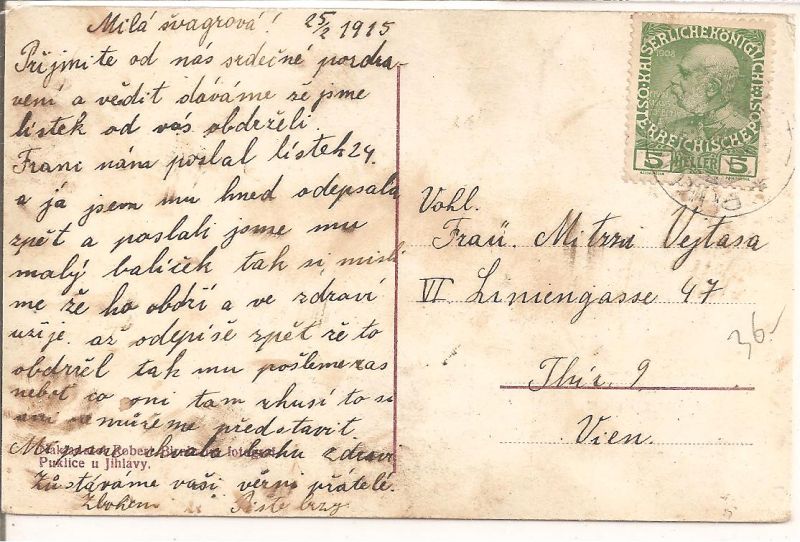 Milá švagrová! 25/2 1915
Přijmite od nás srdečné pozdra
vení a vědit dáváme že jsme
lístek od vás obdrželi.
Frani nám poslal lístek 24.
a já jsem mu hned odepsala
zpět a poslali jsme mu
malý balíček tak si misli
me že ho obdrží a ve zdraví
užije. až odepíše zpět že to
obdržel tak mu pošleme zas
nebot co oni tam zkusí to si
můžeme představit
My pane chvala bohu zdravi
Zůstáváme vaši věrni přátelé.
Zbohem Piste brzy
Robert fotograf
Puklice u Jihlavy.
KAISERLICHE KÖNIGLICHE ÖSTERREICHISCHE POST
1908
5 HELLER 5
Vohl.
Fraü. Mitzzi Vejtasa
VI Liniengasse 47
Thür. 9
Vien.
36-